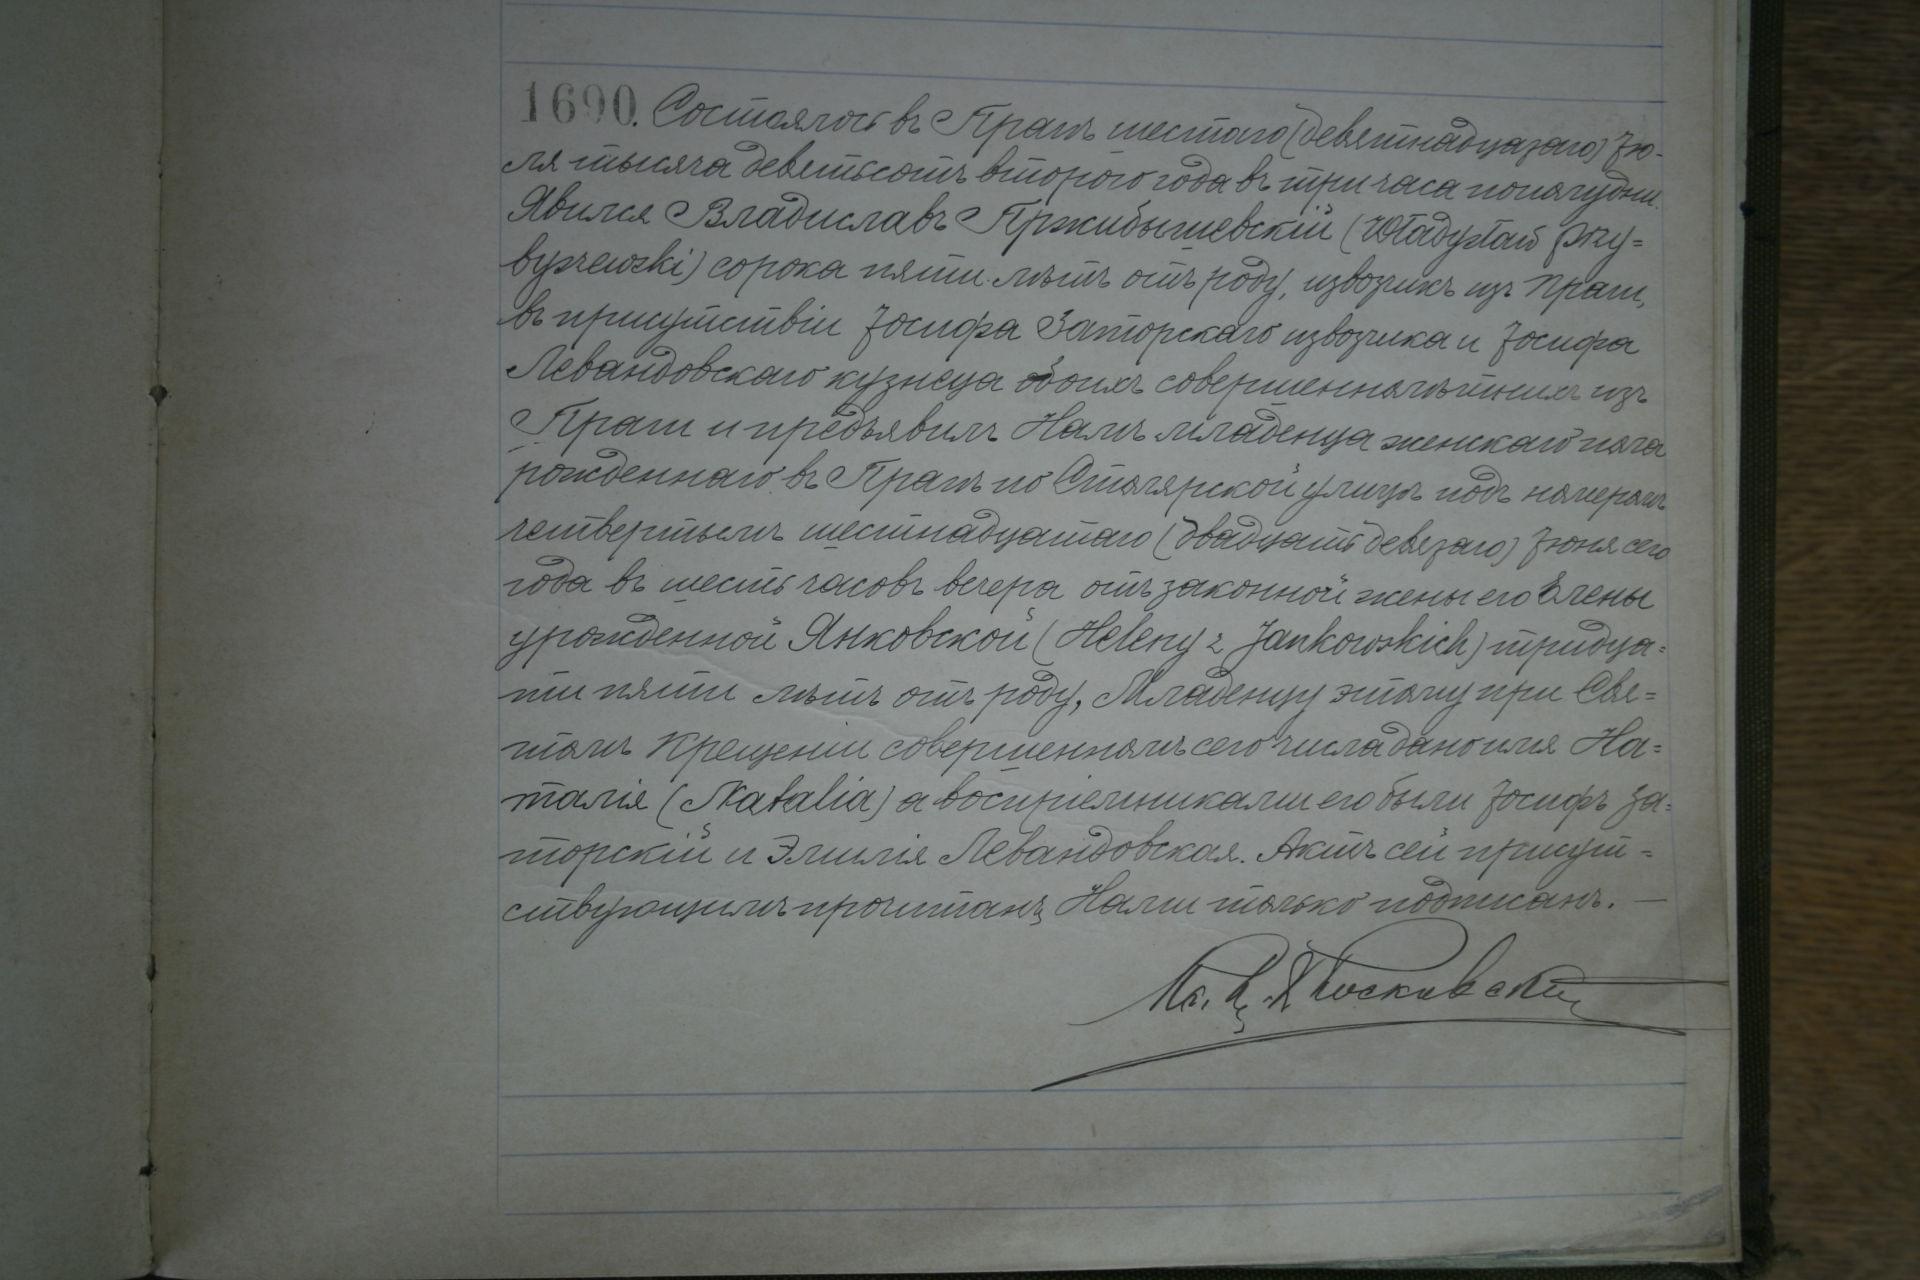 1690. Состоялось въ Прагѣ шестаго (девятнадцатаго) Ію-
ля тысяча девятьсотъ второго года въ три часа пополудни.
Явился Владиславъ Пржибышевскій (Władysław Przy=
byszewski) сорока пяти лѣтъ отъ роду, извозчикъ изъ Праги,
въ присутствіи Іосифа Заторскаго извозчика и Іосифа
Левандовскаго кузнеца обоихъ совершеннолѣтнихъ изъ
Праги и предъявилъ Намъ младенца женскаго пола
рожденнаго въ Прагѣ по Столярской улицѣ подъ номеромъ
четвертымъ шестнадцатаго (двадцать девятаго) Іюня сего
года въ шесть часовъ вечера отъ законной жены его Елены
урожденной Янковской (Heleny z Jankowskich) тридца=
ти пяти лѣтъ отъ роду, Младенцу этому при Свя=
томъ Крещеніи совершенномъ сего числа дано имя На=
талія (Natalia) а воспріемниками его были Іосифъ За=
торскій и Эмилія Левандовская. Актъ сей присут=
ствующимъ прочитанъ Нами только подписанъ. —